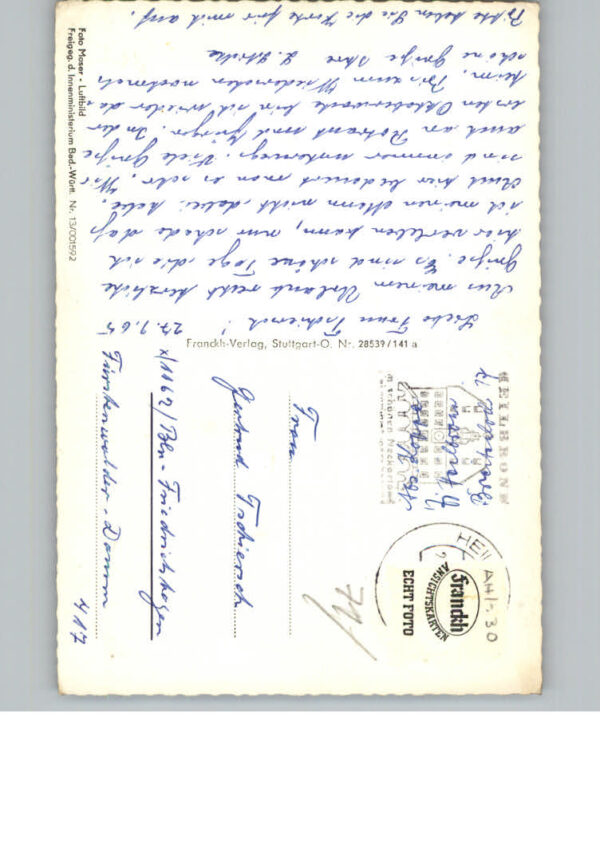 27.9.65
Liebe Frau Tschiersch!
Aus meinem Urlaub recht herzliche
Grüße. Es sind schöne Tage die ich
hier verleben kann, nur schade daß
ich meinen Mann nicht dabei habe.
Auch hier bedauert man es sehr. Wir
sind immer unterwegs. Viele Grüße
auch an Rotraut und Jürgen. In der
ersten Oktoberwoche bin ich wieder da=
heim. Bis zum Wiedersehen nochmals
schöne Grüße Ihre
Bitte heben Sie die Karte für mich auf.
Foto Moser - Luftbild
Freigeg. d. Innenministerium Bad.-Württ. Nr. 13/001592
Franckh-Verlag, Stuttgart-O. Nr. 28539/141 a
HEILBRONN
am schönen Neckarland
HEIL
Franckh
ANSICHTSKARTEN
ECHT FOTO
Frau
Gertrud Tschiersch
x/1162/Bln-Friedrichshagen
Fürstenwalder-Damm
417